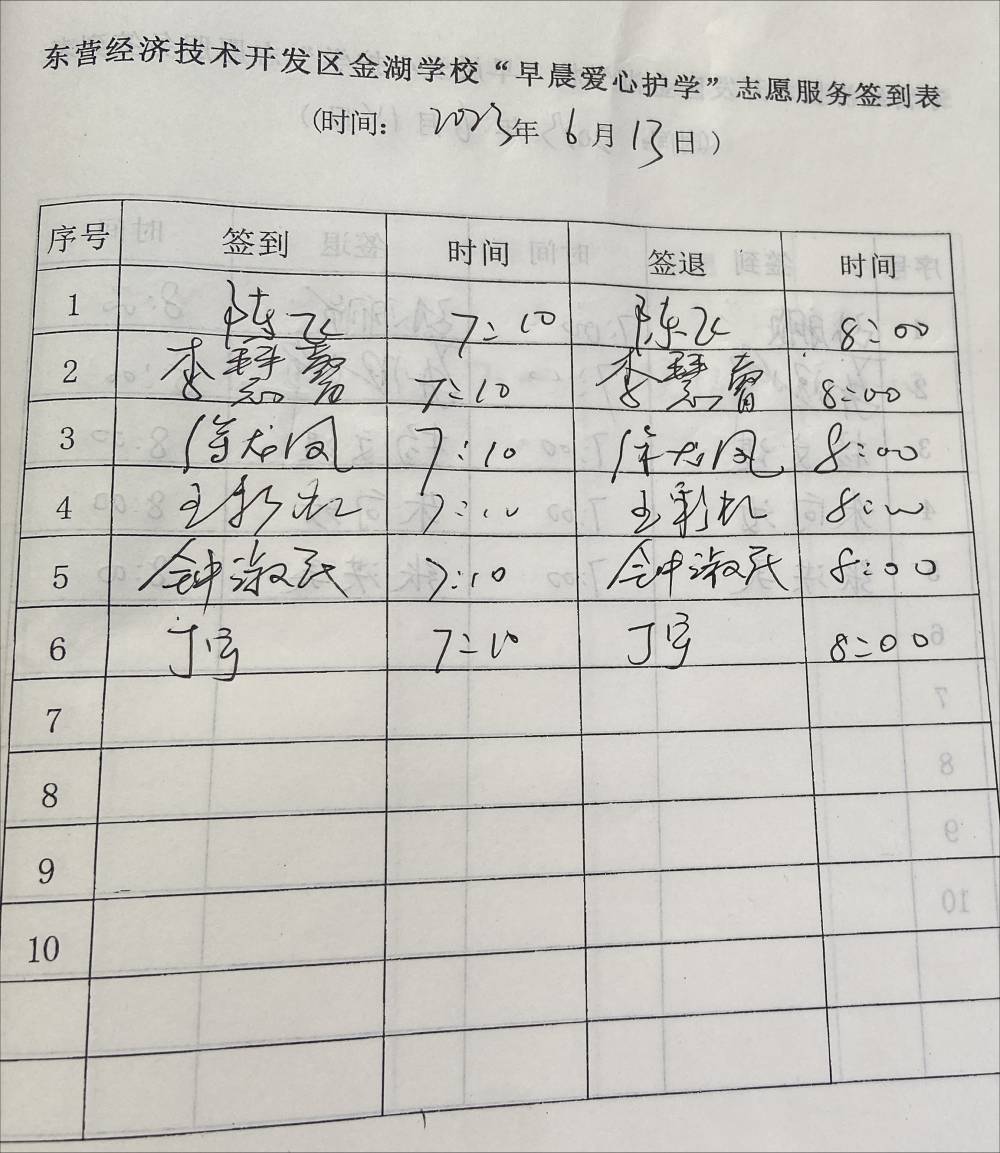 东营经济技术开发区金湖学校“早晨爱心护学”志愿服务签到表
(时间: 2023年 6月 13日)
序号 签到 时间 签退 时间
1 陈飞 7:10 陈飞 8:00
2 李慧馨 7:10 李慧馨 8:00
3 龙凤 7:10 龙凤 8:00
4 王彩虹 7:10 王彩虹 8:00
5 钟淑民 7:10 钟淑民 8:00
6 丁 7:10 丁 8:00
7
8
9
10